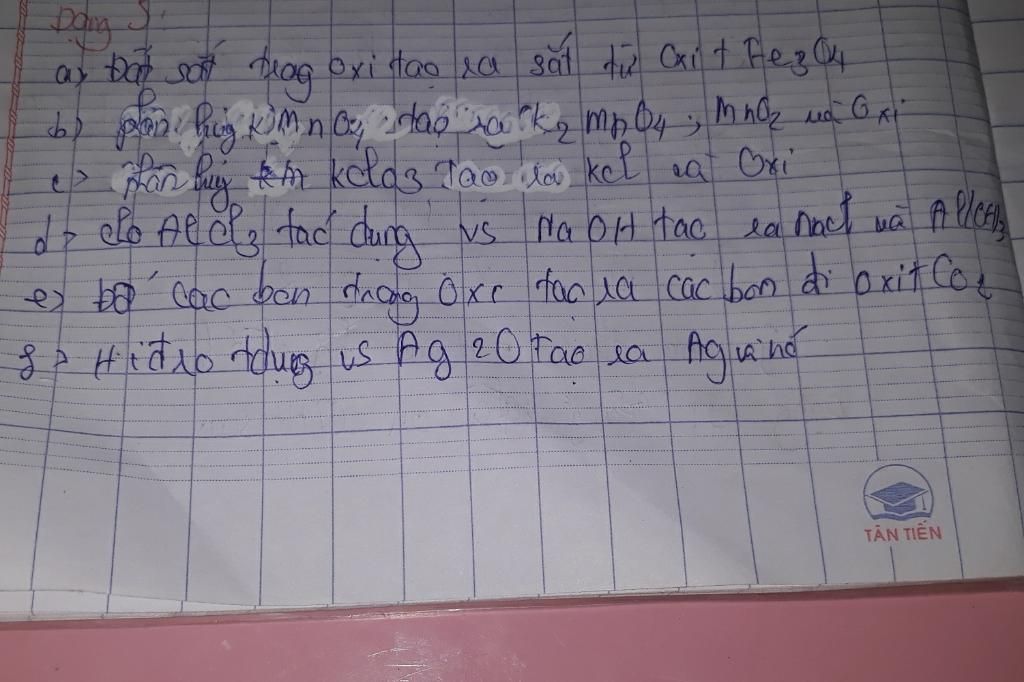 Dạng 5.
a> Đốt sắt trog oxi tạo ra sắt từ Oxit Fe3O4
b> phân hủy KMnO4 tạo ra K2MnO4, MnO2 và Oxi
c> phân hủy kclo3 Tạo ra kcl và Oxi
d> cho AlCl3 tác dụng vs NaOH tạo ra nacl và Al(OH)3
e> đốt các bon trong Oxi tạo ra các bon đi oxit Co2
g> Hiđro tdụng vs Ag2O tạo ra Ag và nc
TÂN TIẾN